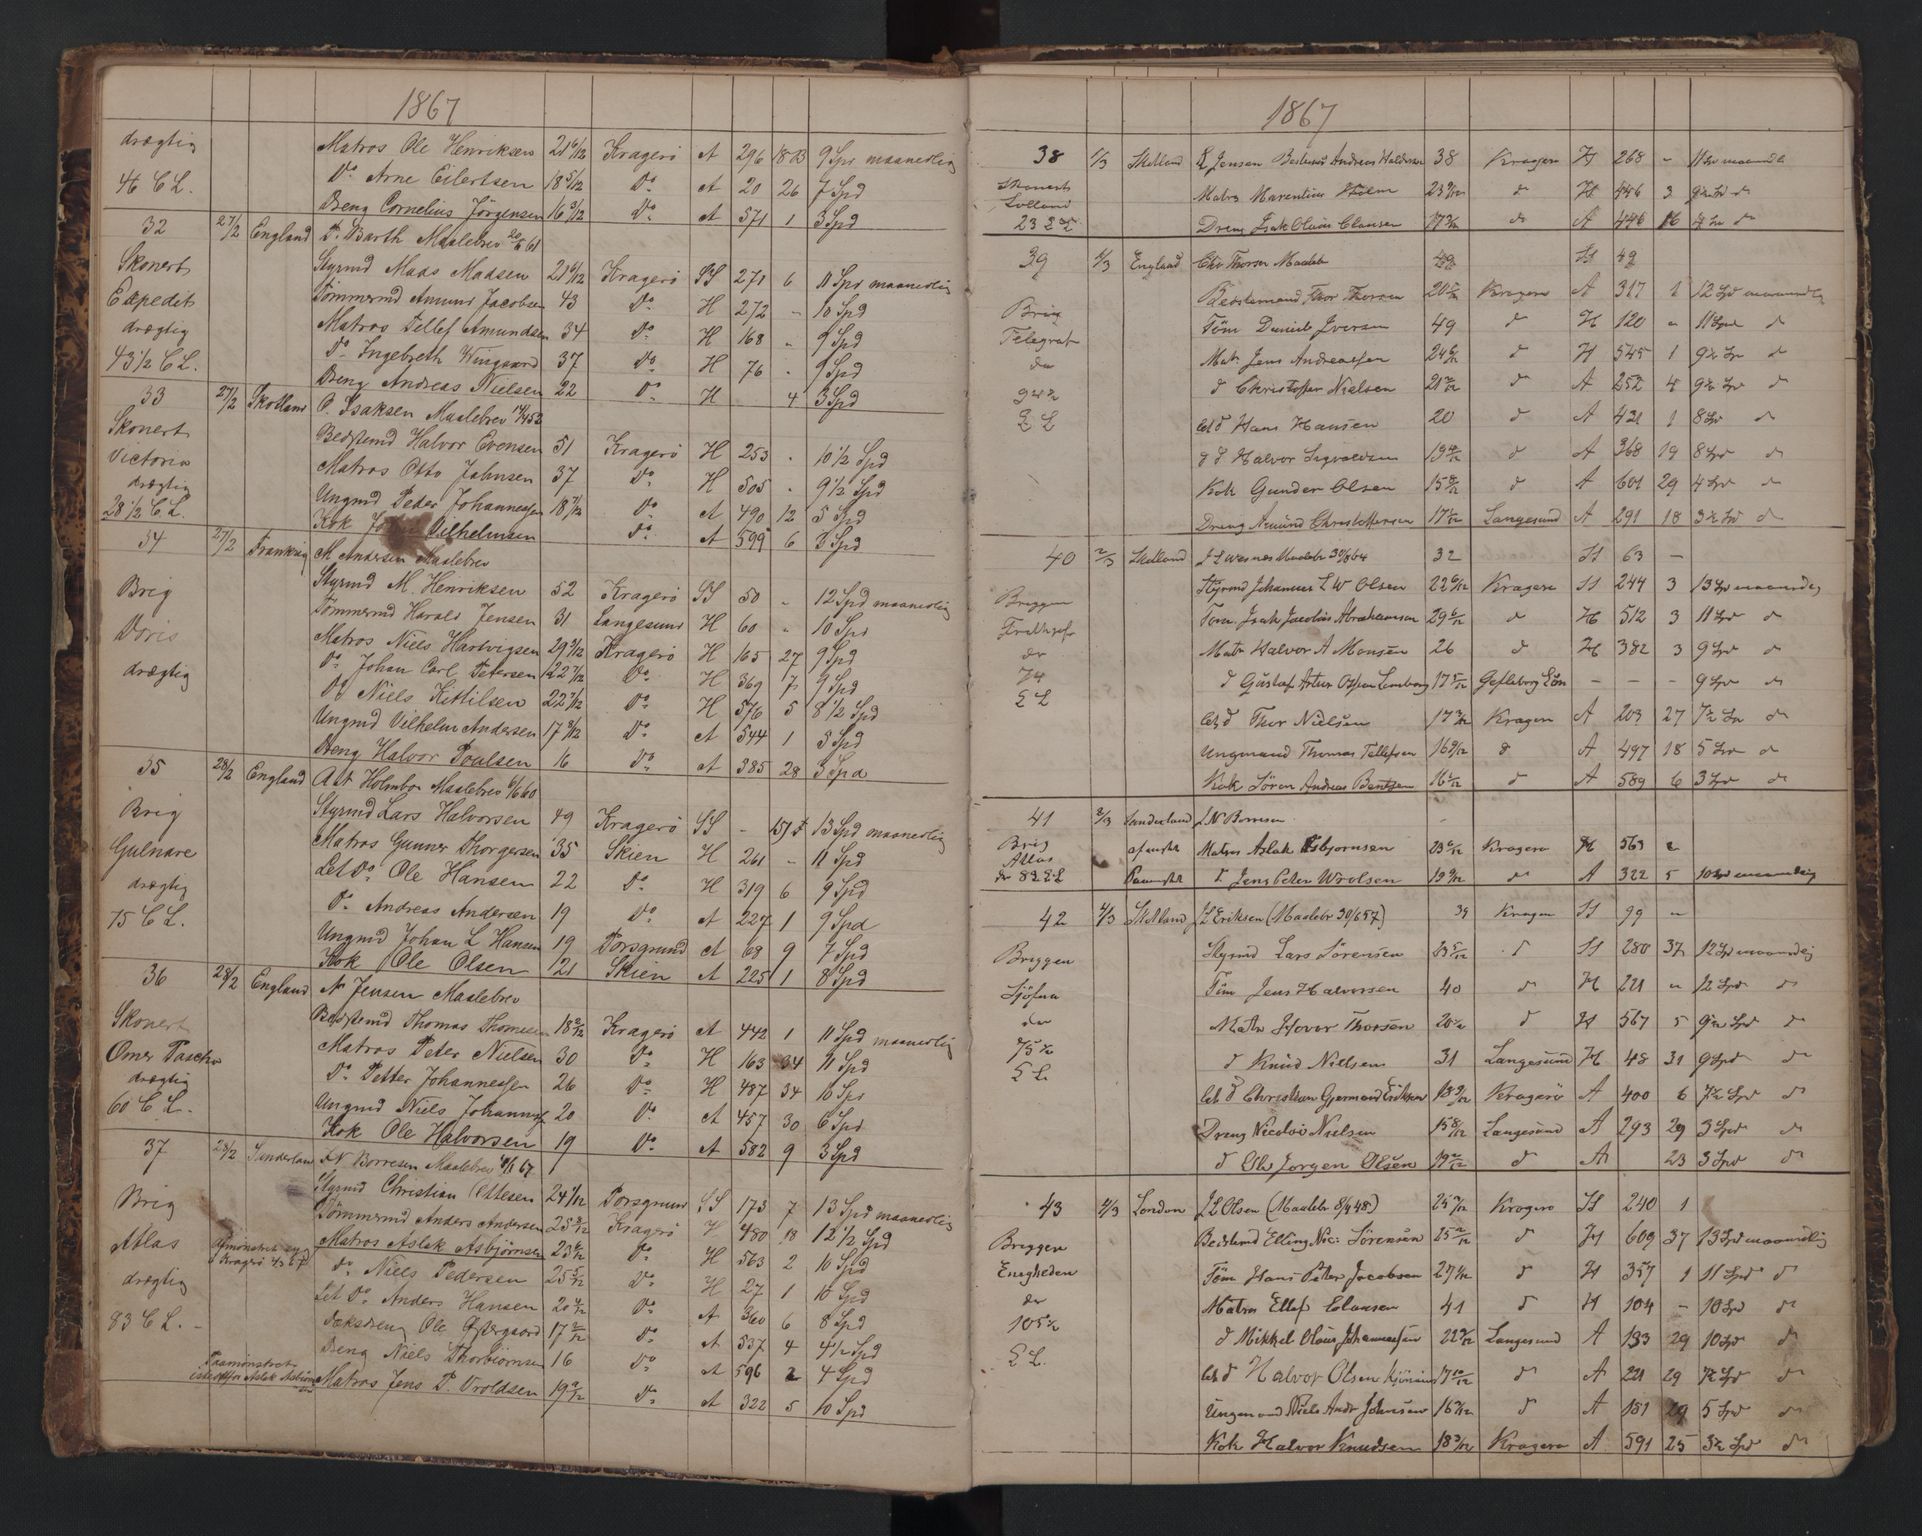 1867
drægtig Matros Ole Henriksen 21 6/12 Kragerö A 296 18 B 9 Spd maanedlig
Do Arne Eilertsen 18 5/12 Do A 20 26 7 Spd
46 C L. Dreng Cornelius Jörgensen 16 3/12 Do A 571 1 3 Spd
32 27/2 England P. Barth Maalebrev 20/5 61
Skonert Styrmd Mads Madsen 21 6/12 Kragerö SS 271 6 11 Spd maanedlig
Expedit Tömmermd Amund Jacobsen 43 Do H 272 - 10 Spd
drægtig Matros Tellef Amundsen 34 Do H 168 - 9 Spd
43 1/2 C L. Do Ingebreth Wingaard 37 Do H 76 - 9 Spd
Dreng Andreas Nielsen 22 Do H 4 3 Spd
33 27/2 Skotland O. Isaksen Maalebrev
Skonert Bedstemd Halvor Evensen 51 Kragerö H 253 - 10 1/2 Spd
Victoria Matros Otto Johnsen 37 Do H 505 - 9 1/2 Spd
drægtig Ungmd Peder Johannessen 18 7/12 Do A 490 12 5 Spd
28 1/2 C L. Kok Vilhelmsen Do A 599 6 3 Spd
34 27/2 Frankrig M Andersen Maalebrev
Brig Styrmd M. Henriksen 52 Kragerö SS 50 - 12 Spd maanedlig
Doris Tömmermd Harald Jensen 31 Langesund H 60 - 10 Spd
Matros Niels Hartvigsen 29 3/12 Kragerö H 165 27 9 Spd
drægtig Do Johan Carl Petersen 22 7/12 Do H 369 7 9 Spd
Do Niels Kittilsen 22 7/12 Do H 576 5 8 1/2 Spd
Ungmd Vilhelm Andersen 17 9/12 Do A 544 1 5 Spd
Dreng Halvor Poulsen 16 Do A 385 28 3 Spd
35 28/2 England Ast Holmboe Maalebrev 6/6 60
Brig Styrmd Lars Halvorsen 49 Kragerö SS - 13 Spd maanedlig
Gulnare Matros Gunner Thorgersen 35 Skien H 261 - 11 Spd
drægtig Let Do Ole Hansen 22 Do H 319 6 9 Spd
75 C L. Do Andreas Andersen 19 Do A 227 1 9 Spd
Ungmd Johan L Hansen 19 Porsgrund A 68 9 7 Spd
Kok Ole Olsen 21 Skien A 225 1 8 Spd
36 28/2 England N Jensen Maalebrev
Skonert Bedstemd Thomas Thomesen 18 2/12 Kragerö A 442 1 11 Spd maanedlig
Omer Pascha Matros Peter Nielsen 30 Do H 163 34 11 Spd
drægtig Do Petter Johannessen 26 Do H 487 34 10 Spd
60 C L. Ungmd Niels Johannes 20 Do A 457 30 6 Spd
Kok Ole Halvorsen 19 Do A 582 9 3 Spd
37 28/2 Sunderland J. N Borresen Maalebrev
Brig Styrmd Christian Ottesen 24 1/12 Porsgrund SS 173 7 13 Spd maanedlig
Tömmermd Anders Andersen 25 3/12 Kragerö H 480 18 12 1/2 Spd
Atlas Afmönstret Matros Aslak Asbjörnsen 23 6/12 Do H 563 2 10 Spd
i Kragerö Do Niels Pedersen 25 5/12 Do H 27 1 10 Spd
drægtig Let Do Anders Hansen 20 4/12 Do A 360 6 8 Spd
83 C L. - Dæksdreng Ole Östergaard 17 2/12 Do A 537 4 4 1/2 Spd
Dreng Niels Thorbiörnsen 16 Do A 596 2 4 Spd
Paamönstret istedetfor Aslak Asbjörnsen Matros Jens P. Vroldsen 19 9/12 Do A 322 5 10 Spd
1867
38 1/3 Skotland K Jensen Bestmd Andreas Halvorsen 38 Kragerø H 268 - 11 Spd maanedl
Skonert Matros Marentius Holm 23 9/12 d H 446 3 9 1/2 Spd d
Lolland
23 Dreng Isak Olaus Clausen 17 3/12 d A 446 16 4 Spd d
39 1/3 England Chr Thorsen Maalebr 49 H 49
Bedstemand Thor Thorsen 20 5/12 Kragerø A 317 1 12 Spd maanedlig
Brig Töm Daniel Iversen 49 d H 120 - 11 Spd d
Telegraf Mat Jens Andreassen 24 6/12 d H 545 1 9 1/2 Spd d
d Christoffer Nielsen 21 2/12 d A 252 4 9 1/2 Spd d
94 1/2 Let d Hans Hansen 20 d A 421 1 8 Spd d
C L d d Halvor Sigvaldsen 19 d A 368 19 8 Spd d
Kok Gunder Olsen 15 8/12 d A 601 29 4 Spd d
Dreng Amund Christoffersen 17 Langesund A 291 18 3 1/2 Spd d
40 2/3 Skotland Maalebr 30/8 64 32 H 63 -
Briggen Styrmd Johannes L W Olsen 22 6/12 Kragerø H 244 3 13 Spd maanedlig
Töm. Isak Jacobus Abrahamsen 29 6/12 d H 512 3 11 Spd d
dr Matr Halvor A Monsen 26 d H 382 3 9 Spd d
74 d Gustaf Artur 17 5/12 Gefleborg Län - - - 9 Spd d
C L Let d Thor Nielsen 17 3/12 Kragerø A 203 27 7 1/2 Spd d
Ungmand Thomas Tellefsen 16 9/12 d A 497 18 5 Spd d
Kok Sören Andreas Bentsen 16 2/12 d A 589 6 3 Spd d
41 2/3 Sunderland J N Borresen
Brig Atlas afmönstret Matros Aslak Asbjornsen 23 6/12 Kragerø H 563 2
dr 83 C L Paamönstret d Jens Peter Wrolsen 19 9/12 d A 322 5 10 Spd maanedlig
42 4/3 Skotland J L Eriksen (Maalebr 30/6 57) 39 Kragerø H 99 -
Briggen Styrmd Lars Sörensen 23 5/12 d H 280 37 12 Spd maanedlig
Sjöfna Töm Jens Halvorsen 40 d H 221 - 12 Spd d
dr Matr Hover Thorsen 20 d H 567 5 9 1/2 Spd d
75 1/2 d Knud Nielsen 31 Langesund H 48 31 9 Spd d
C L. Let d Christian Gjermund Eriksen 18 9/12 Kragerö A 400 6 7 1/2 Spd d
Dreng Nicolai Nielsen 15 8/12 Langesund A 293 29 3 Spd d
d Ole Jorgen Olsen 19 2/12 d A 23 3 Spd d
43 4/3 London J L Olsen (Maalebr 8/4 48) 25 Kragerö H 240 1
Briggen Bedstemd Elling Nic: Sörensen 25 2/12 d H 609 37 13 Spd maanedlig
Enigheden Töm Hans Peter Jacobsen 27 d H 357 1 11 Spd d
dr Matros Ellef Clausen 41 d H 104 - 10 Spd d
105 1/2 d Mikkel Olaus Johannessen 22 Langesund A 133 29 10 Spd d
C L. Let d Halvor Olsen 17 10/12 d A 221 29 7 1/2 Spd d
Ungmand Niels Andr Johnsen 16 d A 151 29 5 Spd d
Kok Halvor Knudsen 18 3/12 Kragerø A 591 25 3 1/2 Spd d